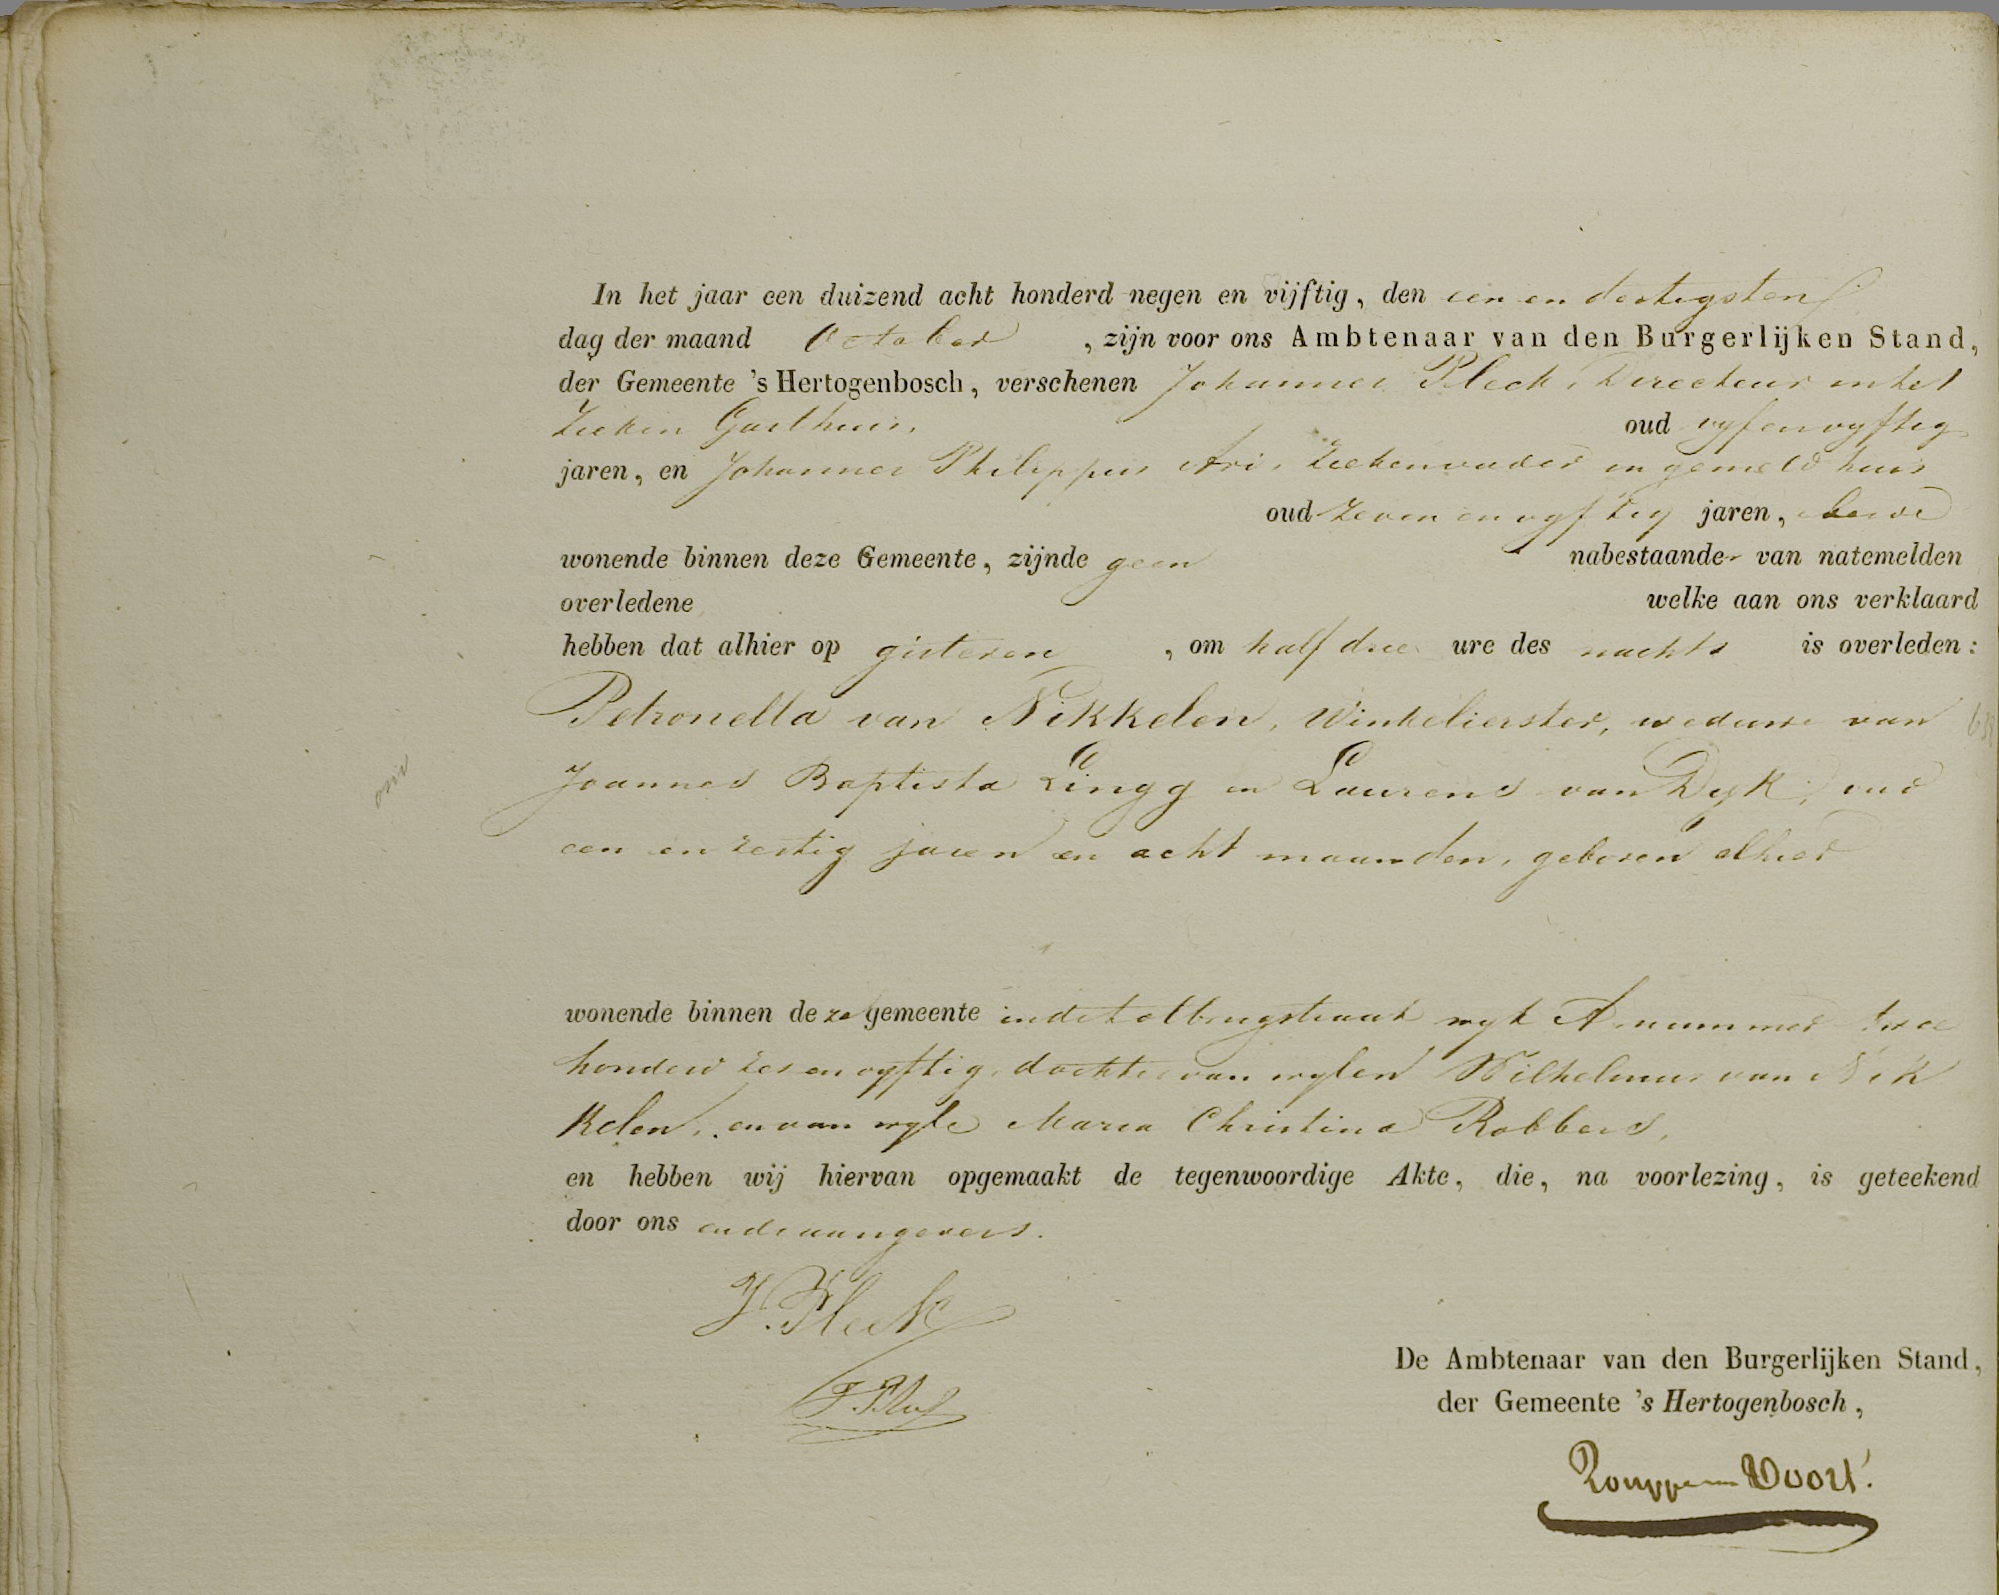 In het jaar een duizend acht honderd negen en vijftig, den een en dertigsten
dag der maand October , zijn voor ons Ambtenaar van den Burgerlijken Stand,
der Gemeente 's Hertogenbosch, verschenen Johannes Pleck, Directeur in het
Zieken Gasthuis, oud vyf en vyftig
jaren, en Johannes Philippus Aris, Ziekenvader in gemeld huis
oud zeven en vyftig jaren, beide
wonende binnen deze Gemeente, zijnde geen nabestaande van natemelden
overledene welke aan ons verklaard
hebben dat alhier op gisteren , om half drie ure des nachts is overleden:
Petronella van Nikkelen, Winkelierster, weduwe van
Joannes Baptista Lingg en Laurens van Dyk, oud
een en zestig jaren en acht maanden, geboren alhier
wonende binnen deze gemeente in de Tolbrugstraat wyk A nummer twee
honderd zes en vyftig, dochter van wylen Wilhelmus van Nik
kelen, en van wyle Maria Christina Robbers,
en hebben wij hiervan opgemaakt de tegenwoordige Akte, die, na voorlezing, is geteekend
door ons en de aangevers.
J. Pleck
De Ambtenaar van den Burgerlijken Stand,
der Gemeente 's Hertogenbosch,